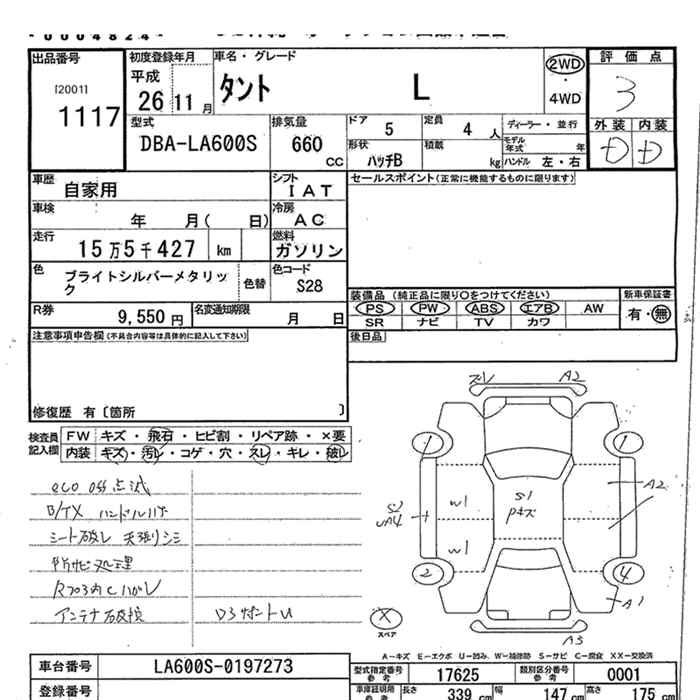 0004824
出品番号
[2001]
1117
初度登録年月
平成
26 11 月
車名・グレード
タント L
2WD
・
4WD
評価点
3
外装 内装
D D
型式
DBA-LA600S
排気量
660
CC
ドア 5
定員 4 人
ディーラー・並行
モデル年式 年
形状 ハッチB
積載 kg
ハンドル 左・右
車歴 自家用
シフト IAT
セールスポイント(正常に機能するものに限ります)
車検 年 月( 日)
冷房 AC
走行 15万5千427 km
燃料 ガソリン
色 ブライトシルバーメタリック
色替
色コード S28
装備品 (純正品に限り〇をつけてください)
新車保証書
PS PW ABS エアB AW
SR ナビ TV カワ
有・無
R券 9,550 円
名変通知期限 月 日
後日品
注意事項申告欄(不具合内容等は具体的に記入して下さい)
修復歴 有〔箇所 〕
検査員記入欄
FW キズ・飛石・ヒビ割・リペア跡・×要
内装 キズ・汚レ・コゲ・穴・スレ・キレ・破レ
eco OFF点滅
シート破レ 天張りシミ
アンテナ破損
A2
1 1
S2
W1
S1
A2
W1
2 4
A1
X
スペア
A3
A-キズ E-エクボ U-凹み W-補修跡 S-サビ C-腐食 XX-交換済
車台番号 LA600S-0197273
登録番号
型式指定番号 参考 17625
類別区分番号 参考 0001
車庫証明用 参考
長さ 339 cm
幅 147 cm
高さ 175 cm